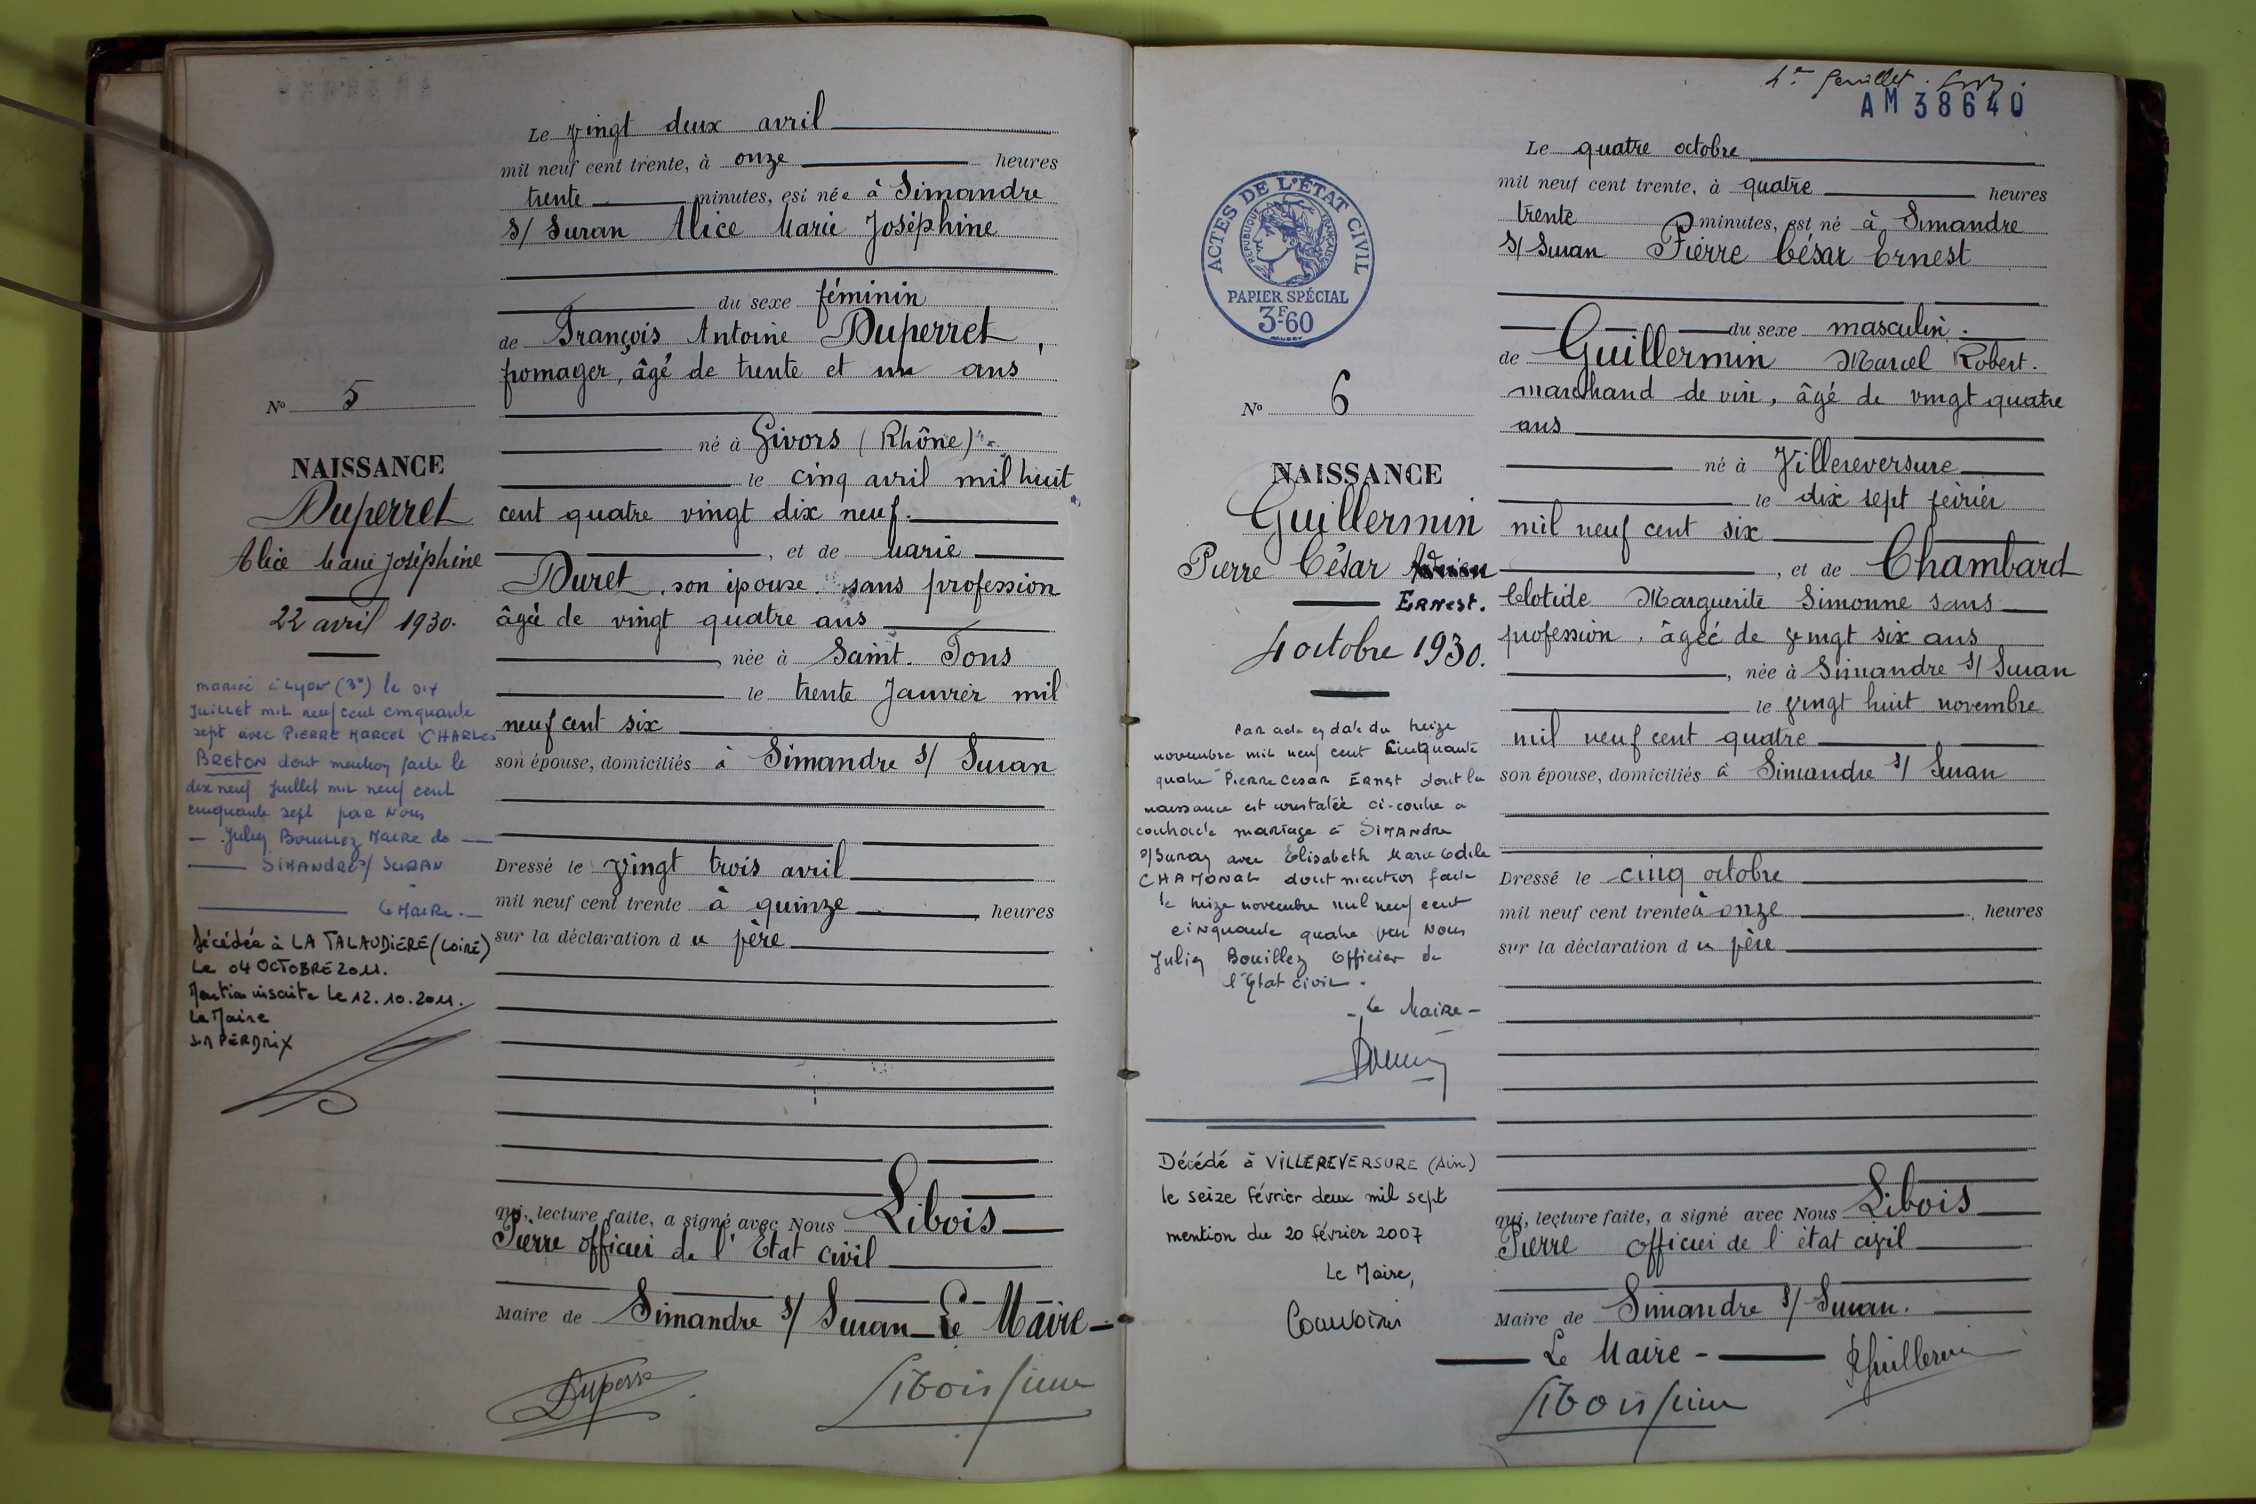 Le vingt deux avril
mil neuf cent trente, à onze heures
trente minutes, est née à Simandre
s/ Suran Alice Marie Joséphine
du sexe féminin
de François Antoine Duperret,
fromager, âgé de trente et un ans
né à Givors (Rhône)
le cinq avril mil huit
cent quatre vingt dix neuf.
, et de Marie
Duret, son épouse, sans profession
âgée de vingt quatre ans
, née à Saint. Fons
le trente Janvier mil
neuf cent six
son épouse, domiciliés à Simandre s/ Suran
Dressé le vingt trois avril
mil neuf cent trente à quinze, heures
sur la déclaration du père
qui, lecture faite, a signé avec Nous Libois
Pierre officier de l'Etat civil
Maire de Simandre s/ Suran Le Maire
Duperret
Libois Pierre
No 5
NAISSANCE
Duperret
Alice Marie Joséphine
22 avril 1930.
mariée à Lyon (3e) le dix
Juillet mil neuf cent cinquante
sept avec PIERRE MARCEL CHARLES
BRETON dont mention faite le
dix neuf Juillet mil neuf cent
cinquante sept par Nous
Julien Bouillez Maire de
SIMANDRE s/ SURAN
Le MAIRE.
Décédée à LA TALAUDIERE (Loire)
Le 04 OCTOBRE 2011.
Mention inscrite le 12.10.2011.
Le Maire
J.M PERDRIX
4e feuillet.
AM 38640
ACTES DE L'ÉTAT CIVIL
RÉPUBLIQUE FRANÇAISE
PAPIER SPÉCIAL
3F60
No 6
NAISSANCE
Guillermin
Pierre César
Ernest.
4 octobre 1930.
Par acte en date du treize
novembre mil neuf cent Cinquante
quatre PIERRE CESAR Ernest dont la
naissance est constatée ci-contre a
contracté mariage à SIMANDRE
s/Suran avec Elisabeth Marie Odile
CHAMONAL dont mention faite
le treize novembre mil neuf cent
cinquante quatre par Nous
Julien Bouillez Officier de
l'Etat civil.
Le Maire
Décédé à VILLEREVERSURE (Ain)
le seize février deux mil sept
mention du 20 février 2007
Le Maire,
Le quatre octobre
mil neuf cent trente, à quatre heures
trente minutes, est né à Simandre
s/ Suran Pierre César Ernest
du sexe masculin.
de Guillermin Marcel Robert.
marchand de vin, âgé de vingt quatre
ans
né à Villereversure
le dix sept février
mil neuf cent six
, et de Chambard
Clotide Marguerite Simonne sans
profession, âgée de vingt six ans
, née à Simandre s/ Suran
le vingt huit novembre
mil neuf cent quatre
son épouse, domiciliés à Simandre s/ Suran
Dressé le cinq octobre
mil neuf cent trente à onze, heures
sur la déclaration du père
qui, lecture faite, a signé avec Nous Libois
Pierre officier de l'état civil
Maire de Simandre s/ Suran.
Le Maire -
Guillermin
Libois Pierre